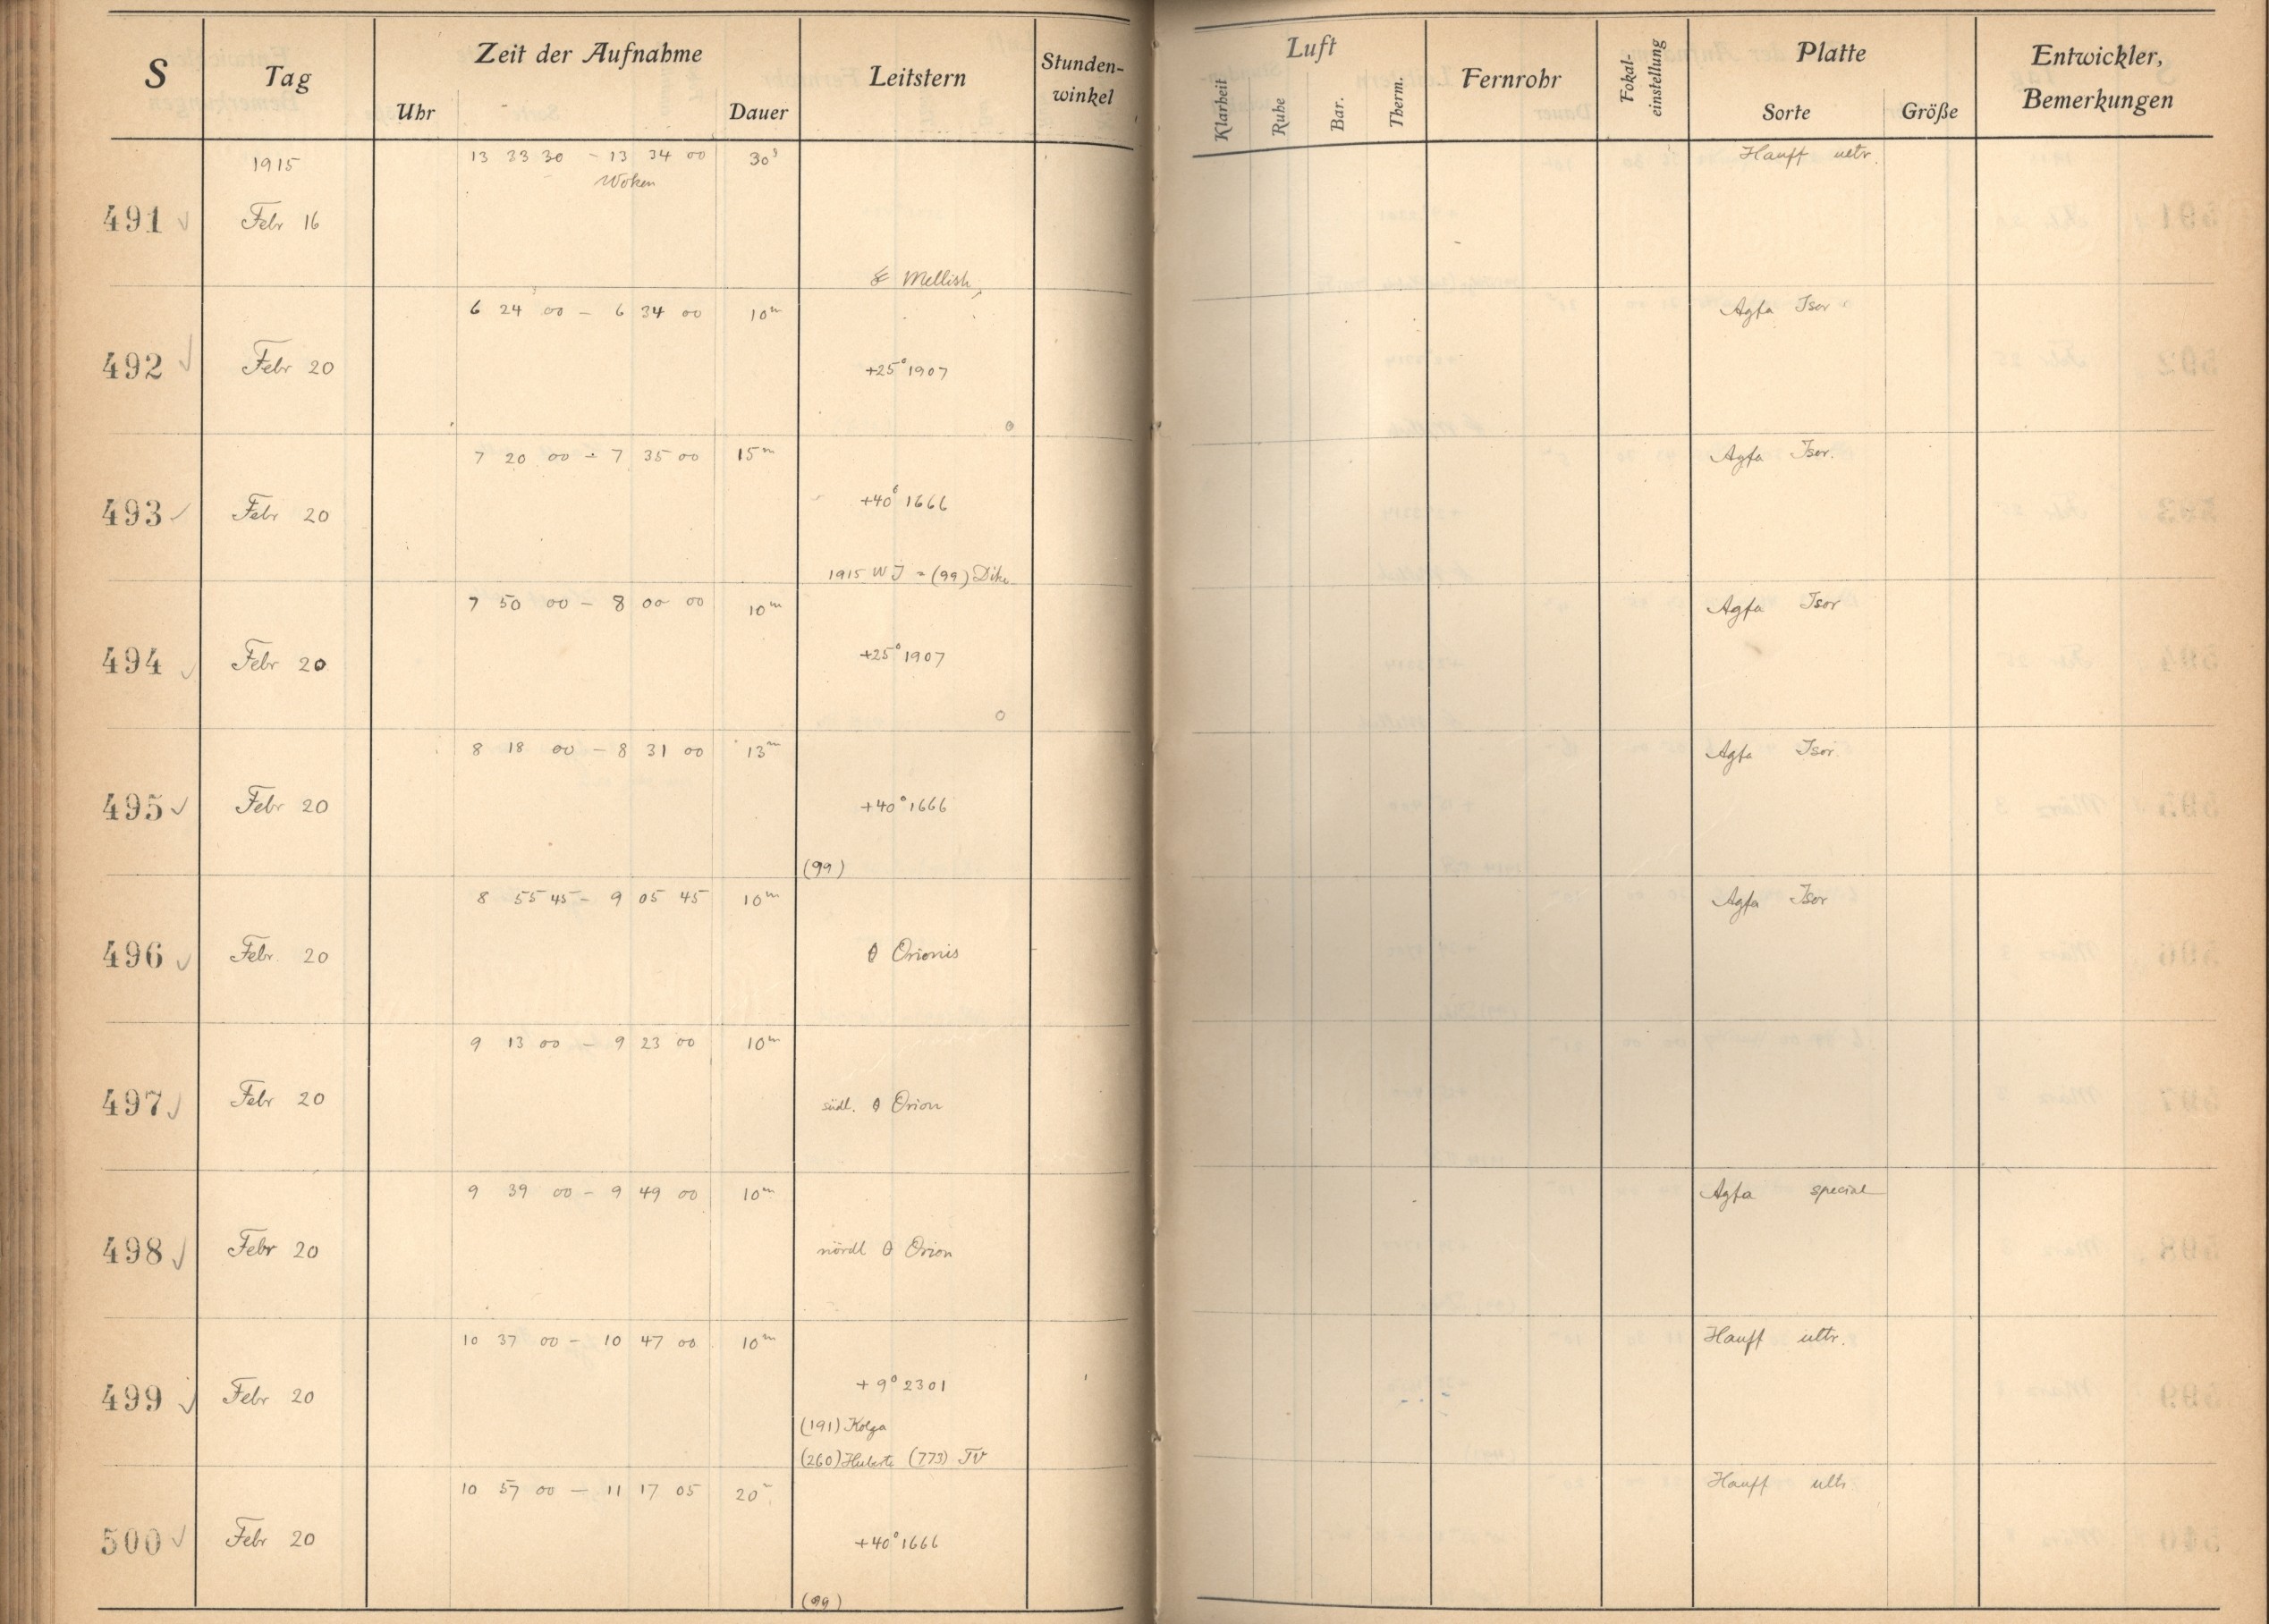 S Tag Zeit der Aufnahme Leitstern Stunden-winkel Luft Fernrohr Fokal-einstellung Platte Entwickler, Bemerkungen
Uhr Dauer Klarheit Ruhe Bar. Therm. Sorte Größe
1915 13 33 30 - 13 34 00 30s Hauff ultr.
Woken
491 Febr 16
Mellish
6 24 00 - 6 34 00 10m Agfa Isor
492 Febr 20 +25°1907
7 20 00 - 7 35 00 15m Agfa Isor.
493 Febr 20 +40°1666
1915 WJ = (99) Dike
7 50 00 - 8 00 00 10m Agfa Isor
494 Febr 20 +25°1907
8 18 00 - 8 31 00 13m Agfa Isor.
495 Febr 20 +40°1666
(99)
8 55 45 - 9 05 45 10m Agfa Isor
496 Febr. 20 θ Orionis
9 13 00 - 9 23 00 10m
497 Febr 20 südl. θ Orion
9 39 00 - 9 49 00 10m Agfa special
498 Febr 20 nördl θ Orion
10 37 00 - 10 47 00 10m Hauff ultr.
499 Febr 20 +9°2301
(191) Kolga
(260) Huberta (773) TV
10 57 00 - 11 17 05 20m Hauff ultr
500 Febr 20 +40°1666
(99)